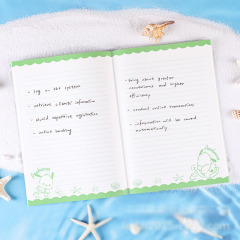 - log on the system
- retrieve clients' information
- avoid repetitive registration
- online banking
- bring about greater
convenience and higher
efficiency
- conduct online transactions
- information will be saved
automatically